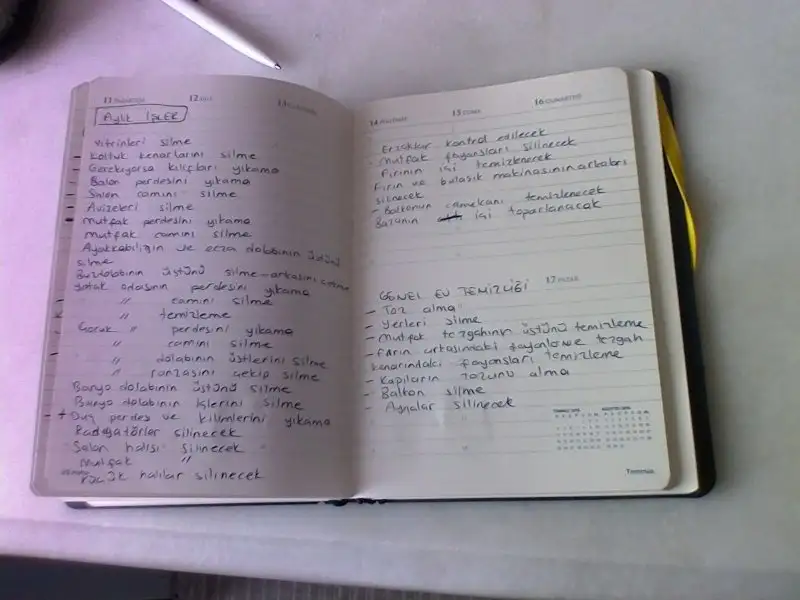 11
12
13
AYLIK İŞLER
vitrinleri silme
koltuk kenarlarını silme
Gerekiyorsa kılıfları yıkama
Salon perdesini yıkama
Salon camını silme
Avizeleri silme
mutfak perdesini yıkama
mutfak camını silme
Ayakkabılığın ve ecza dolabının üstünü
silme
Buzdolabının üstünü silme-arkasını
Yatak odasının perdesini yıkama
" camını silme
" temizleme
Çocuk " perdesini yıkama
" camını silme
" dolabının üstlerini silme
" ranzasını çekip silme
Banyo dolabının üstünü silme
Banyo dolabının içlerini silme
- + Duş perdesi ve kilimlerini yıkama
Radyatörler silinecek
Salon halısı silinecek
mutfak "
halılar silinecek
14
15 CUMA
16 CUMARTESİ
Erzaklar kontrol edilecek
- Mutfak fayansları silinecek
Fırının içi temizlenecek
Fırın ve bulaşık makinasının arkaları
silinecek
- Balkonun camekanı temizlenecek
Bazanın içi toparlanacak
17 PAZAR
GENEL EV TEMİZLİĞİ
- Toz alma
- Yerleri silme
- Mutfak tezgahının üstünü temizleme
- Fırın arkasındaki fayanlar ve tezgah
kenarındaki fayansları temizleme
- Kapıların tozunu alma
- Balkon silme
- Aynalar silinecek
Temmuz